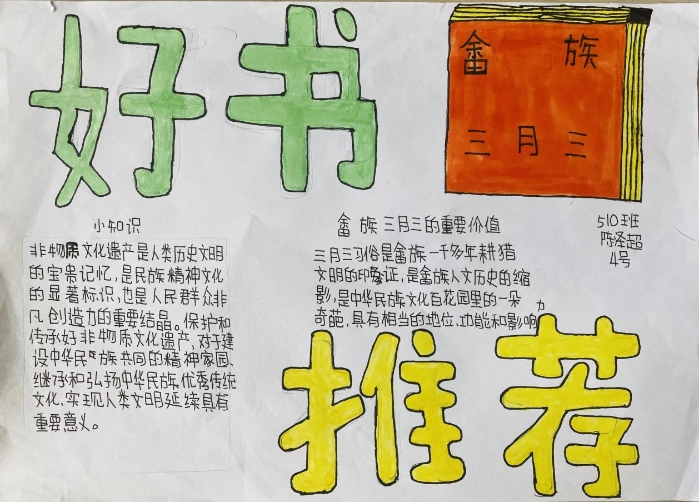 好书
畲族
三月三
小知识
非物质文化遗产是人类历史文明
的宝贵记忆,是民族精神文化
的显著标识,也是人民群众非
凡创造力的重要结晶。保护和
传承好非物质文化遗产,对于建
设中华民族共同的精神家园、
继承和弘扬中华民族优秀传统
文化,实现人类文明延续具有
重要意义。
畲族三月三的重要价值
三月三习俗是畲族一千多年耕猎
文明的印象证,是畲族人文历史的缩
影,是中华民族文化百花园里的一朵
奇葩,具有相当的地位、功能和影响力
510班
陈泽超
4号
推荐